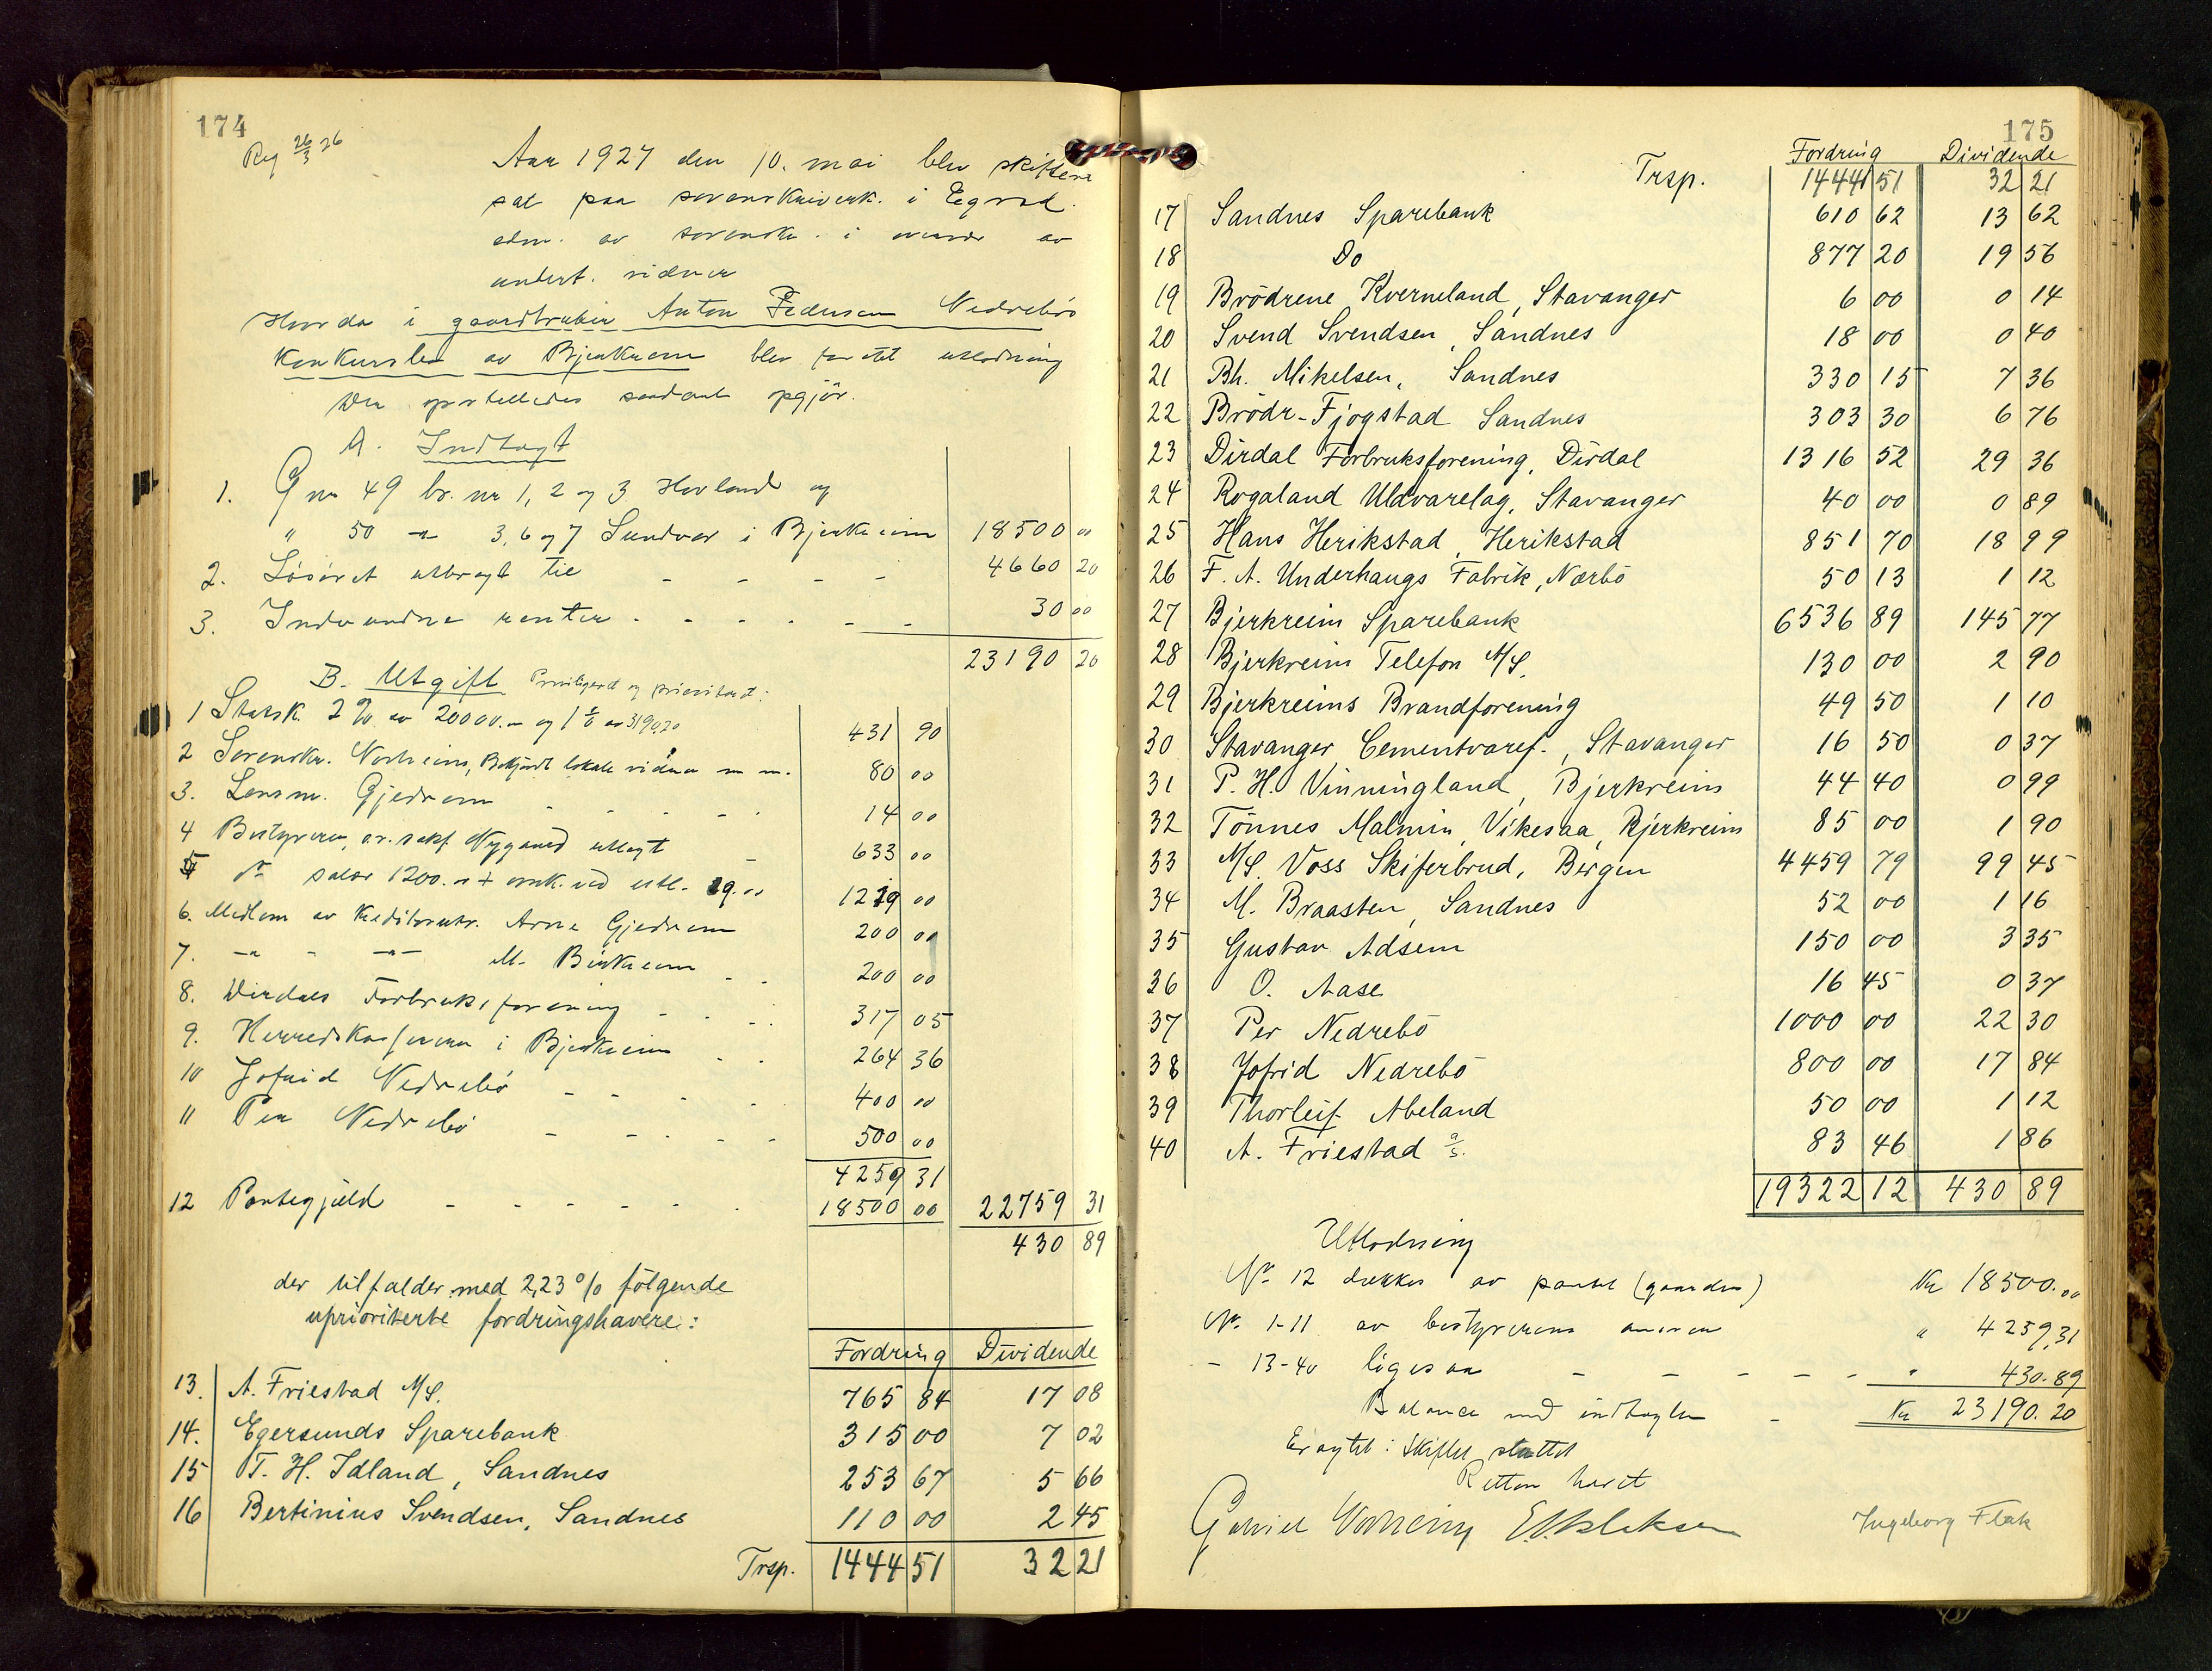 174
Reg 26/3 26
Aar 1927 den 10. mai blev skifteret
sat paa sorenskriverk. i Egersund
adm. av sorenskr. i nærvær av
undert. vidner
Hvorda i gaardbruker Anton Pedersen Nedrebös
konkursbo av Bjerkreim blev foretat utlodning
Der opstilledes saadant opgjör.
A. Indtægt
1. Gnr 49 br. nr 1, 2 og 3 Hovland og
" 50 -"- 3, 6 og 7 Sundvor i Bjerkreim 18500 00
2. Lösöret utbragt til - - - - 4660 20
3. Indvundne renter - - - - - - 30 00
23190 20
B. Utgift Privilegert og prioritert:
1 Statsk. 2% av 20000.- og 1% av 3190,20 431 90
2 Sorenskr. Norheim, Bekjendt lokale vidner m m. 80 00
3. Lensm. Gjedrem - - - - 14 00
4 Bestyreren, o.r.sakf. Nygaard utlagt - 633 00
5 do salær 1200.- + omk. ved utl. 19.00 1219 00
6. Medlem av kreditorutv. Arne Gjedrem 200 00
7. -"- - -"- M. Birkreim - - 200 00
8. Dirdals Forbruksforening - - - 317 05
9. Herredskassereren i Bjerkreim - - 264 36
10 Jofrid Nedrebö - - - - 400 00
11 Per Nedrebö - - - - - 500 00
4259 31
12 Pantegjæld - - - - - 18500 00 22759 31
430 89
der tilfalder med 2,23% fölgende
uprioriterte fordringshavere:
Fordring Dividende
13. A. Friestad A/S. 765 84 17 08
14. Egersunds Sparebank 315 00 7 02
15 T. H. Idland, Sandnes 253 67 5 66
16 Bertinius Svendsen, Sandnes 110 00 2 45
Trsp. 1444 51 32 21
175
Fordring Dividende
Trsp. 1444 51 32 21
17 Sandnes Sparebank 610 62 13 62
18 Do 877 20 19 56
19 Brödrene Kverneland, Stavanger 6 00 0 14
20 Svend Svendsen, Sandnes 18 00 0 40
21 Bh. Mikelsen, Sandnes 330 15 7 36
22 Brödr. Fjogstad Sandnes 303 30 6 76
23 Dirdal Forbruksforening, Dirdal 1316 52 29 36
24 Rogaland Uldvarelag, Stavanger 40 00 0 89
25 Hans Herikstad, Herikstad 851 70 18 99
26 F. A. Underhaugs Fabrik, Nærbö 50 13 1 12
27 Bjerkreim Sparebank 6536 89 145 77
28 Bjerkreim Telefon A/S. 130 00 2 90
29 Bjerkreims Brandforening 49 50 1 10
30 Stavanger Cementvaref., Stavanger 16 50 0 37
31 P. H. Vinningland, Bjerkreim 44 40 0 99
32 Tönnes Malmin, Vikesaa, Bjerkreim 85 00 1 90
33 A/S. Voss Skiferbrud, Bergen 4459 79 99 45
34 M. Braasten, Sandnes 52 00 1 16
35 Gustav Adsem 150 00 3 35
36 O. Aase 16 45 0 37
37 Per Nedrebö 1000 00 22 30
38 Jofrid Nedrebö 800 00 17 84
39 Thorleif Abeland 50 00 1 12
40 A. Friestad a/s. 83 46 1 86
19322 12 430 89
Utlodning
No. 12 dækkes av pantet (gaarden) Kr 18500.00
No. 1-11 av bestyrerens " 4259,31
- 13-40 ligesaa - - - - - " 430.89
Balance med indtægten - Kr 23190.20
Eragtet: Skiftet sluttet
Retten hævet
Gabriel Norheim Ingeborg Fløk